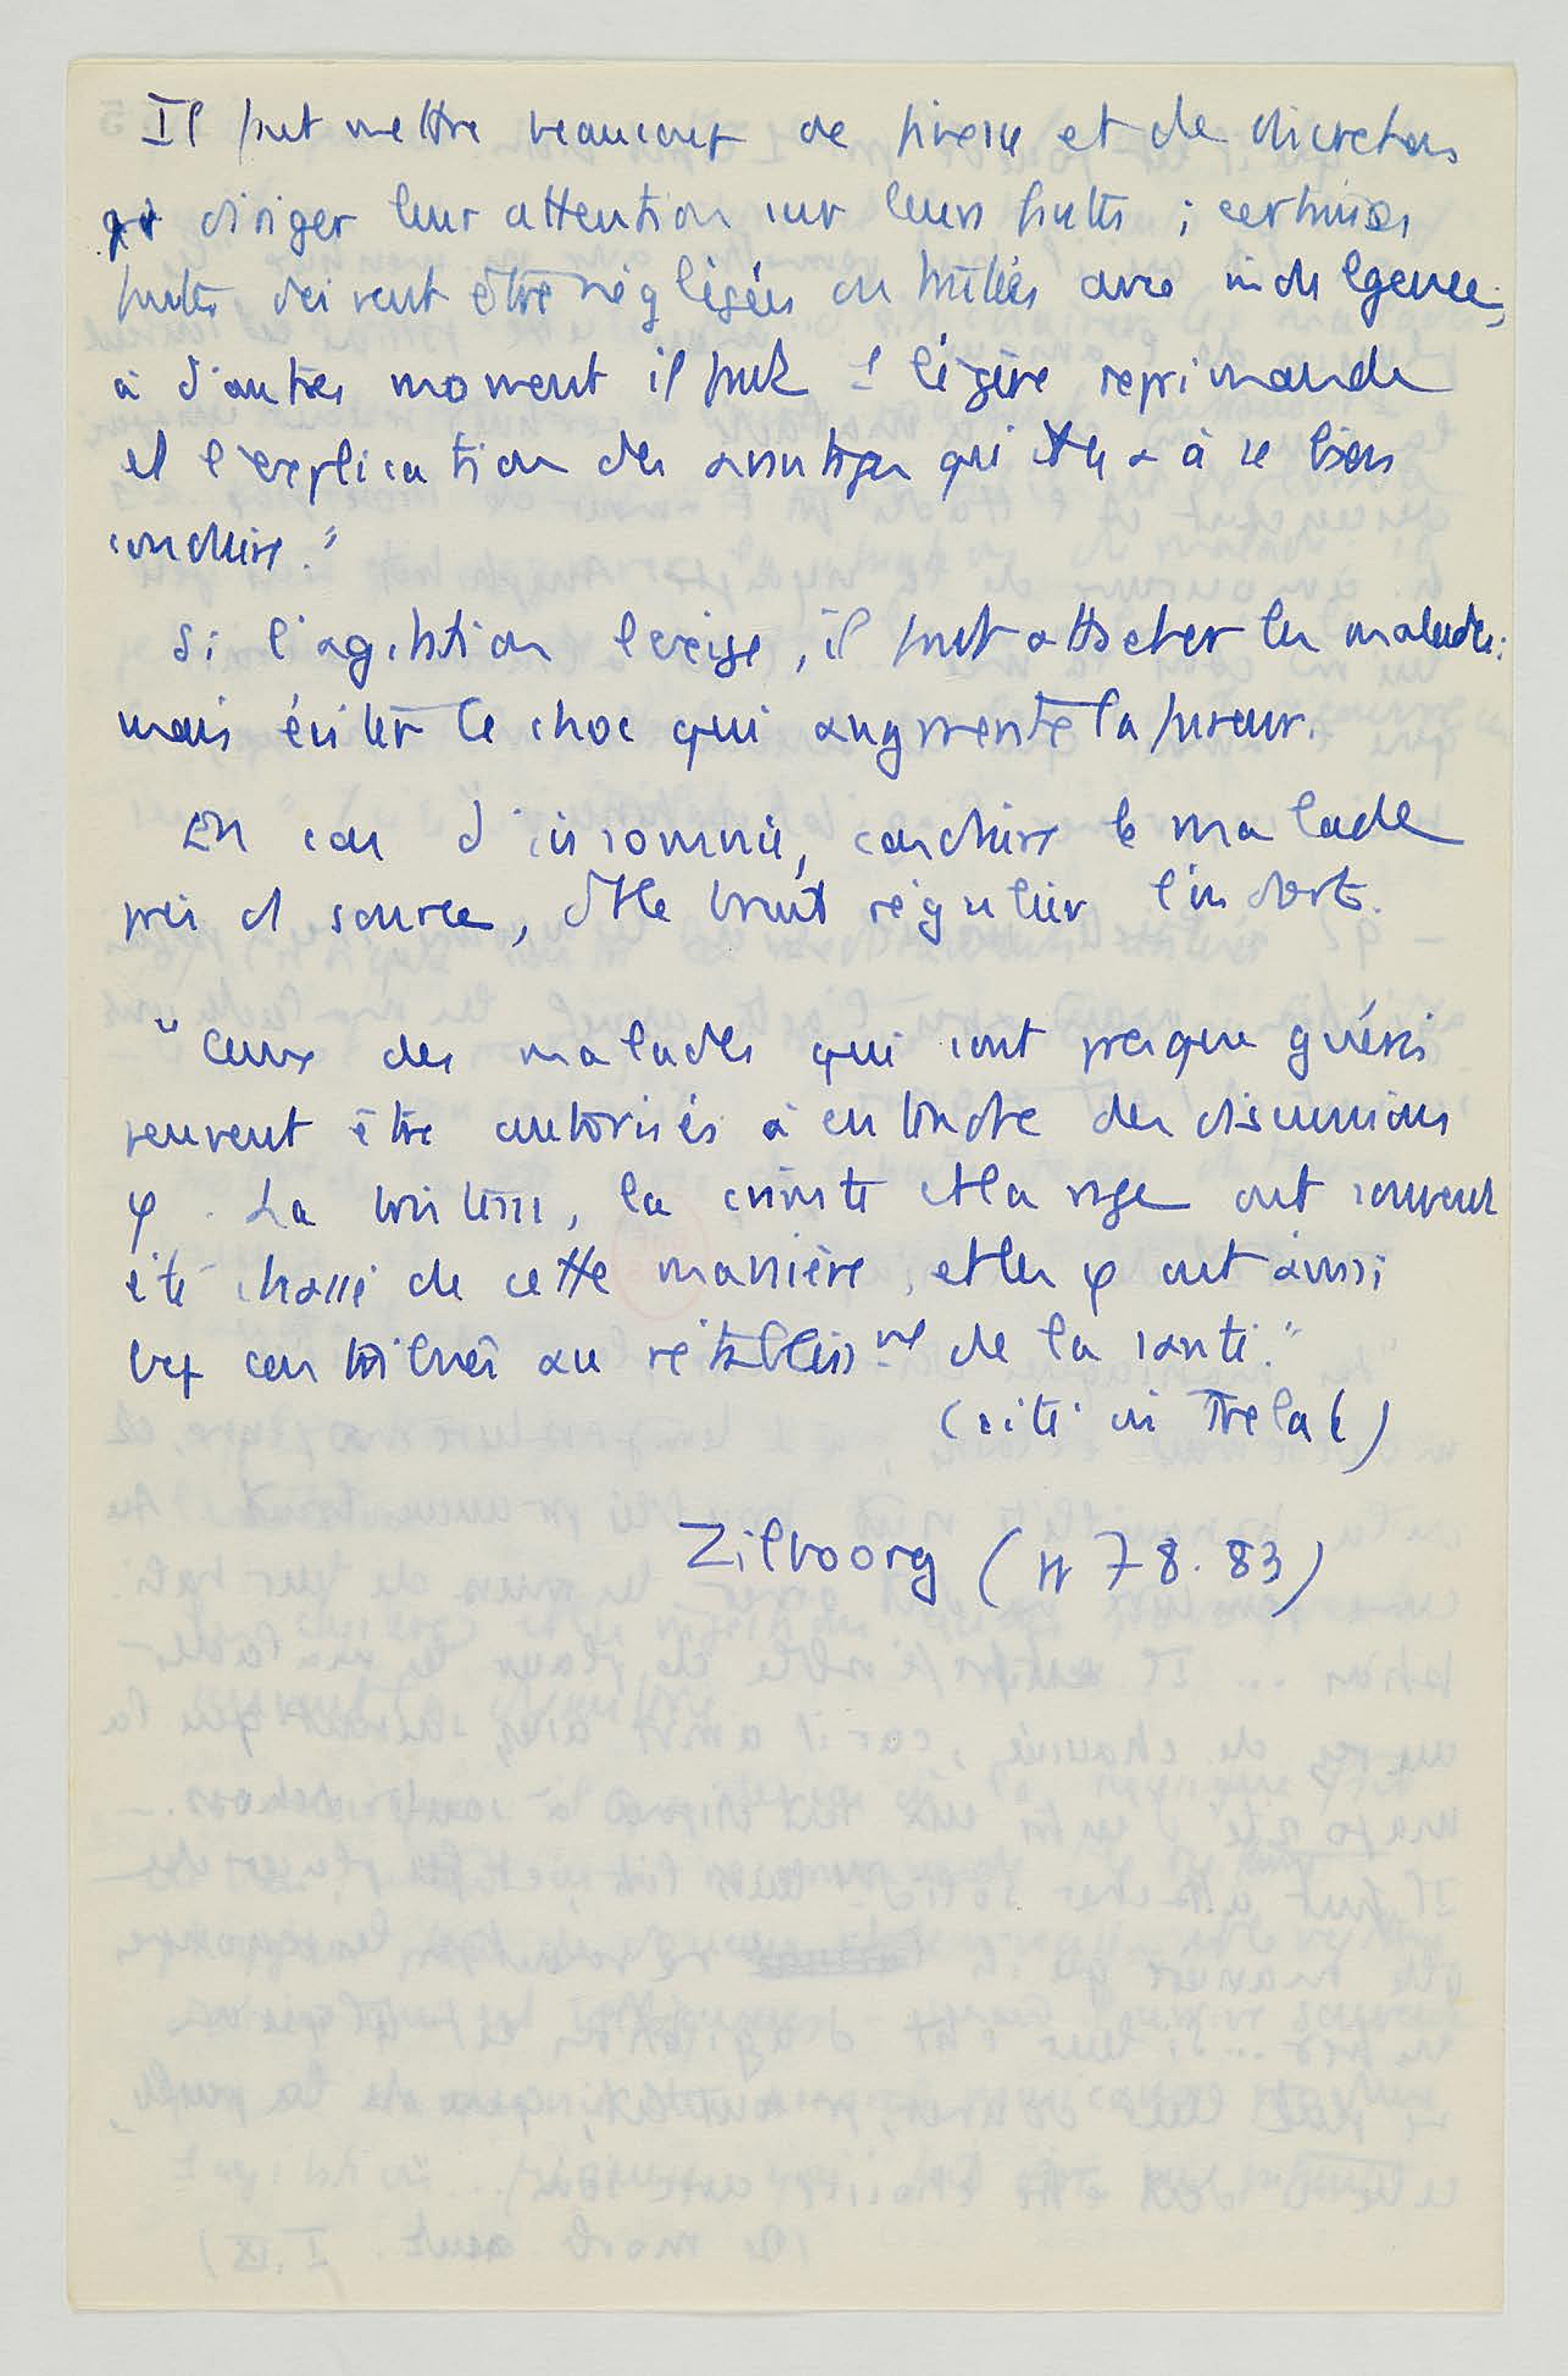 Il faut mettre beaucoup de finesse et de discretion
pr diriger leur attention sur leurs fautes ; certaines
fautes doivent être négligées ou traitées avec indulgence,
à d'autres moment il faut 1 légère reprimande
et l'explication des avantages qu'il y a à se bien
conduire."
Si l'agitation l'exige, il faut attacher les malades :
mais éviter le choc qui augmente la fureur.
En cas d'insomnie, conduire le malade
près d'1 source, dt le bruit régulier l'endort.
"Ceux des malades qui sont presque guéris
peuvent être autorisés à entendre des discussions
φ. La tristesse, la crainte et la rage ont souvent
été chassé de cette manière, et les φ ont ainsi
bcp contribué au rétabliss^mt de la santé."
(cité in Trelat)
Zilboorg (pp 78.83)